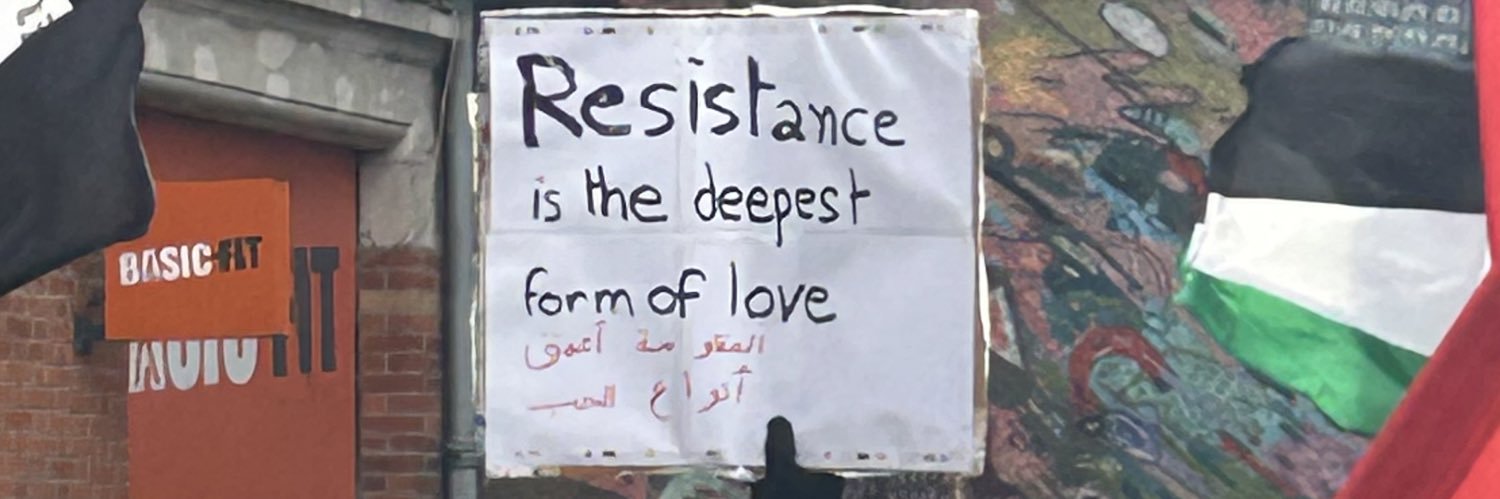 BASIC-FIT
Resistance
is the deepest
form of love
المقاومة أعمق
أنواع الحب